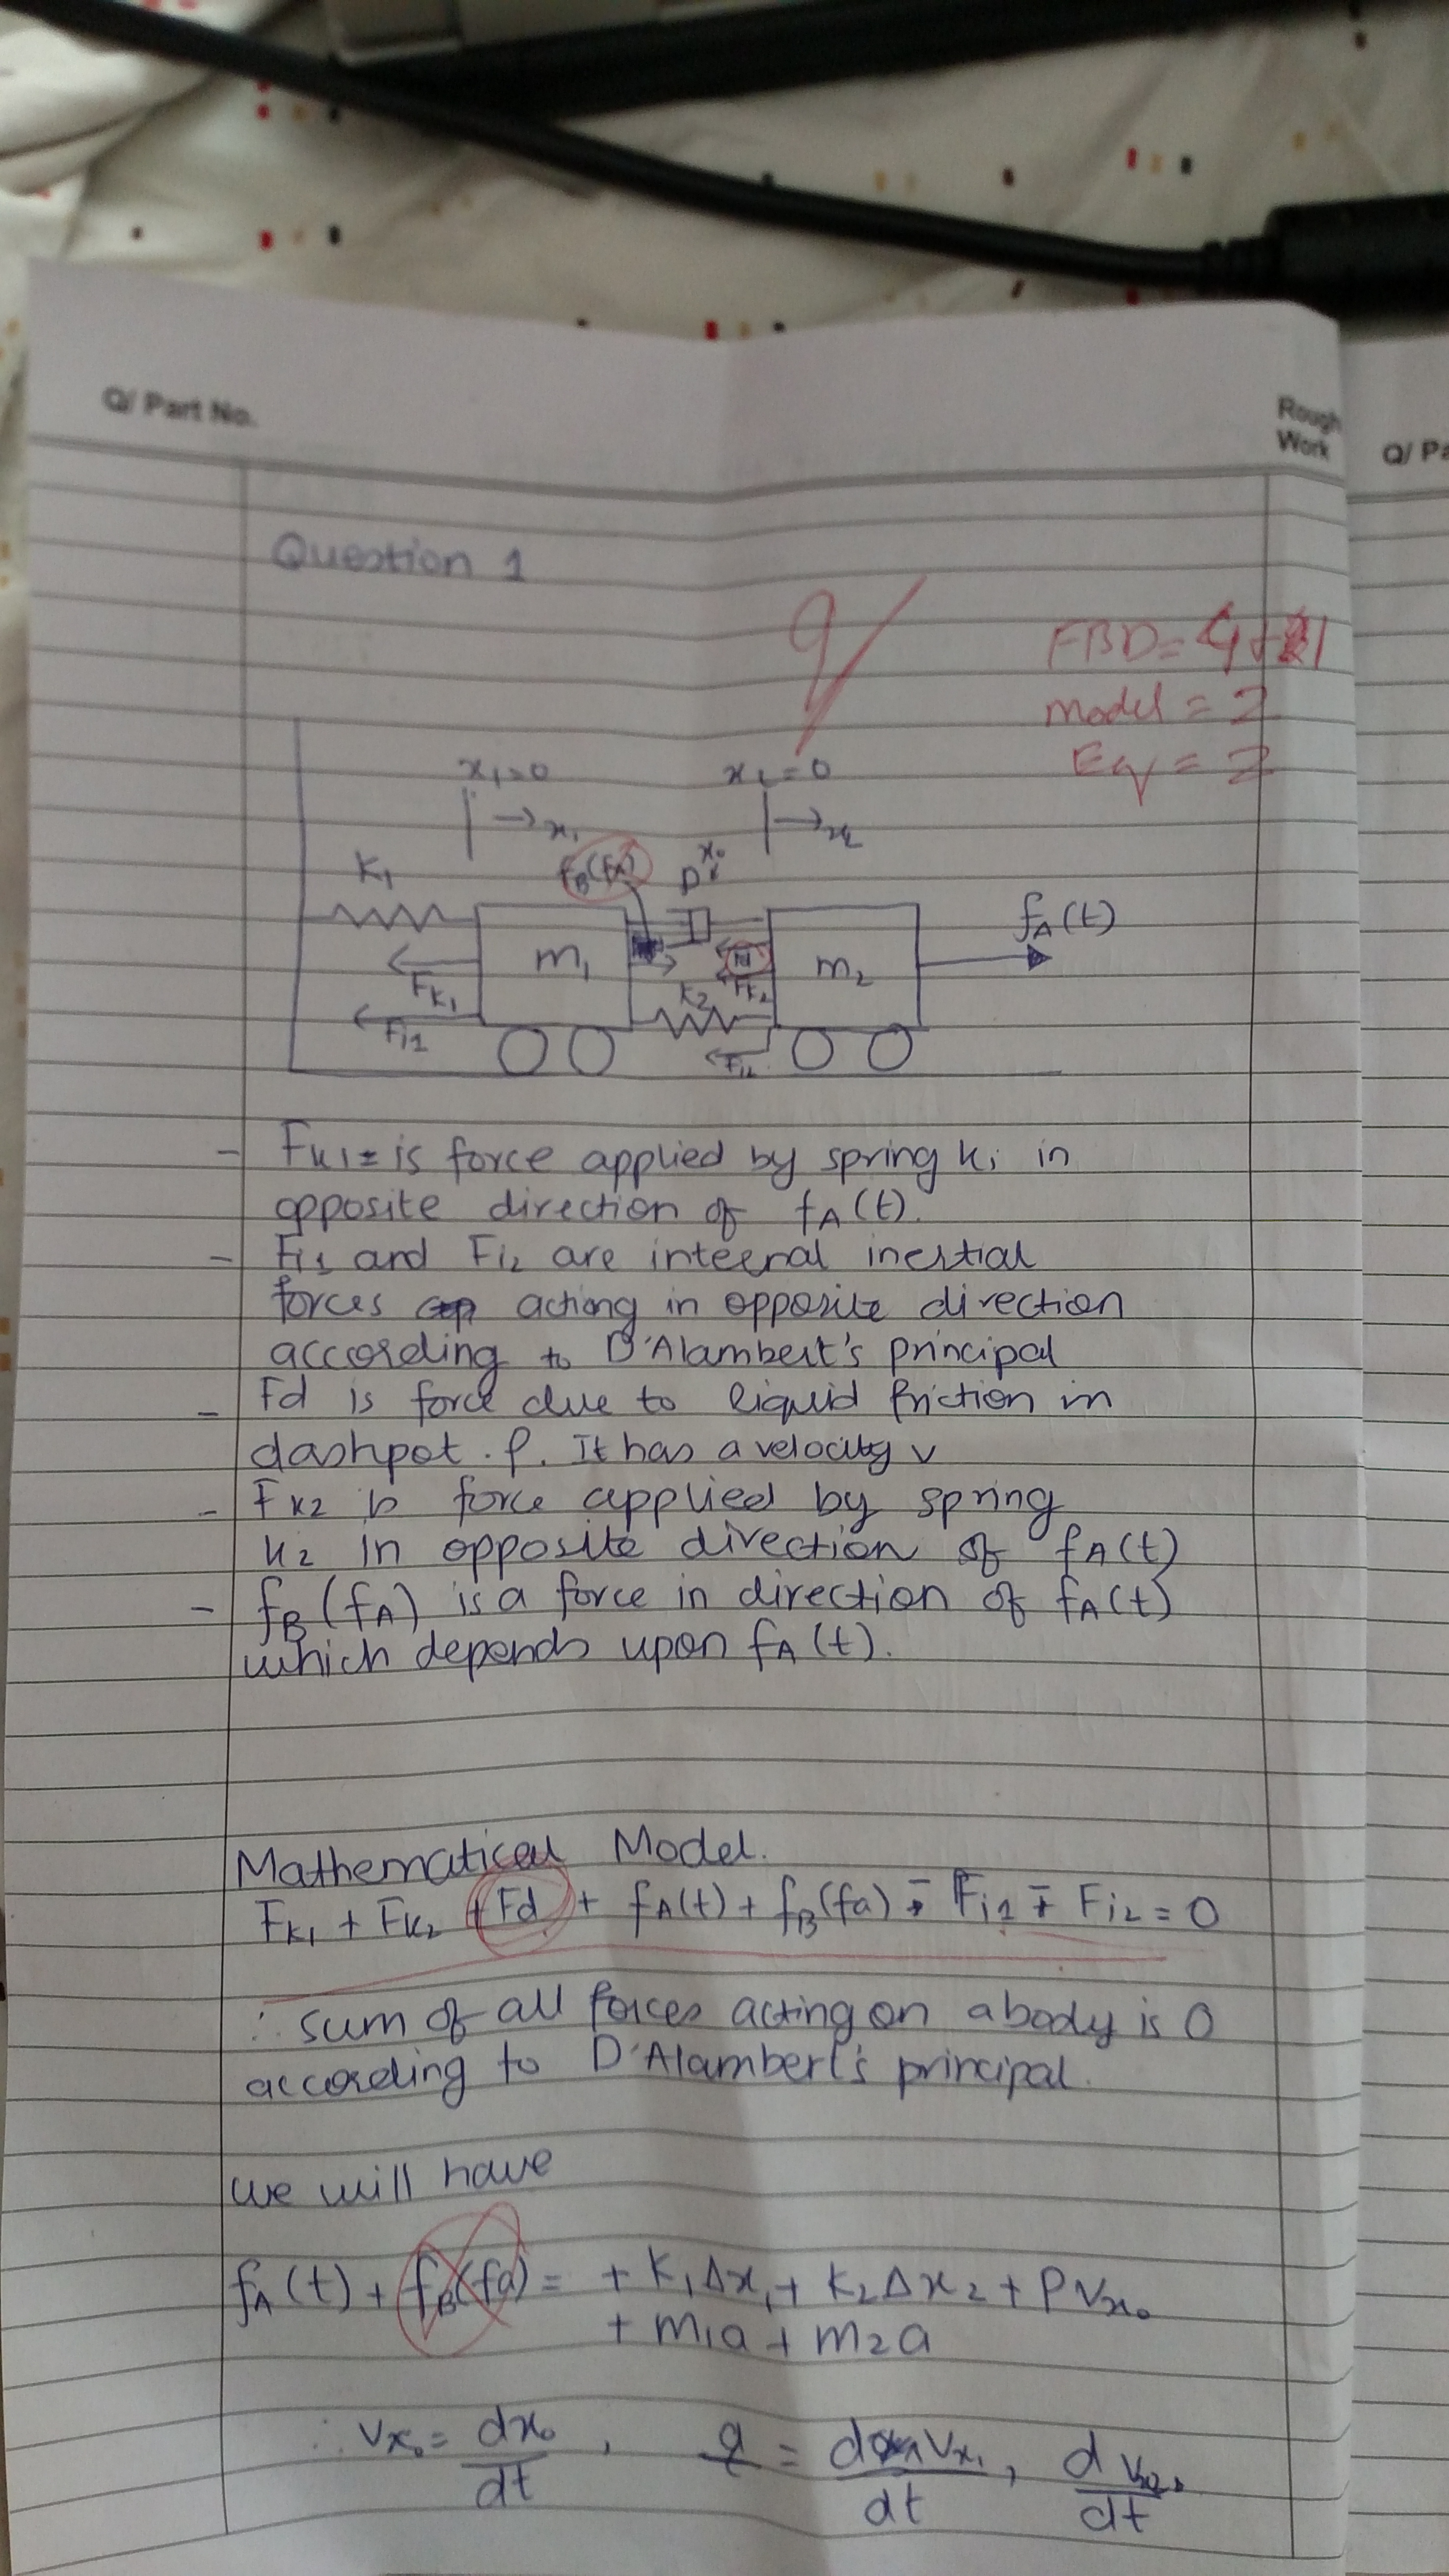 Q/ Part No.
Rough
Work
Q/ Pa
Question 1
9
FBD = 4+1
Model = 2
Eq = 2
x₁=0
x₂=0
→x₁
→x₂
K₁
fB(fA)
P
x₀
fA(t)
m₁
m₂
FK₁
Fi1
Fd
FK₂
K₂
Fi2
- FK1= is force applied by spring K₁ in
opposite direction of fA(t).
- Fi1 and Fi2 are internal inertial
forces acting in opposite direction
according to D'Alambert's principal
- Fd is force due to liquid friction in
dashpot . P. It has a velocity v
- FK2 is force applied by spring
K2 in opposite direction of fA(t)
- fB(fA) is a force in direction of fA(t)
which depends upon fA(t).
Mathematical Model.
FK₁ + FK₂ + Fd + fA(t) + fB(fa) - Fi1 - Fi2 = 0
∴ sum of all forces acting on a body is 0
according to D'Alambert's principal.
we will have
fA(t) + fB(fa) = + K₁Δx₁ + K₂Δx₂ + PVx₀
+ m₁a + m₂a
∴ Vx₀ = dx₀/dt , a = dVx₁/dt , d/dt